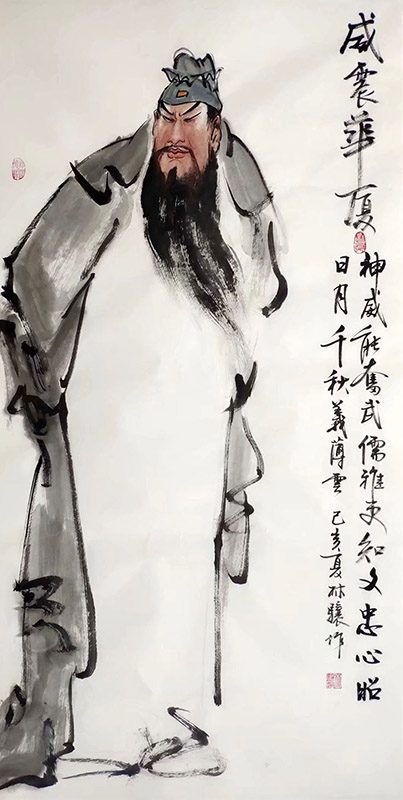 威震華夏
神威能奮武儒雅更知文忠心昭
日月千秋義薄雲 己亥夏 驤作